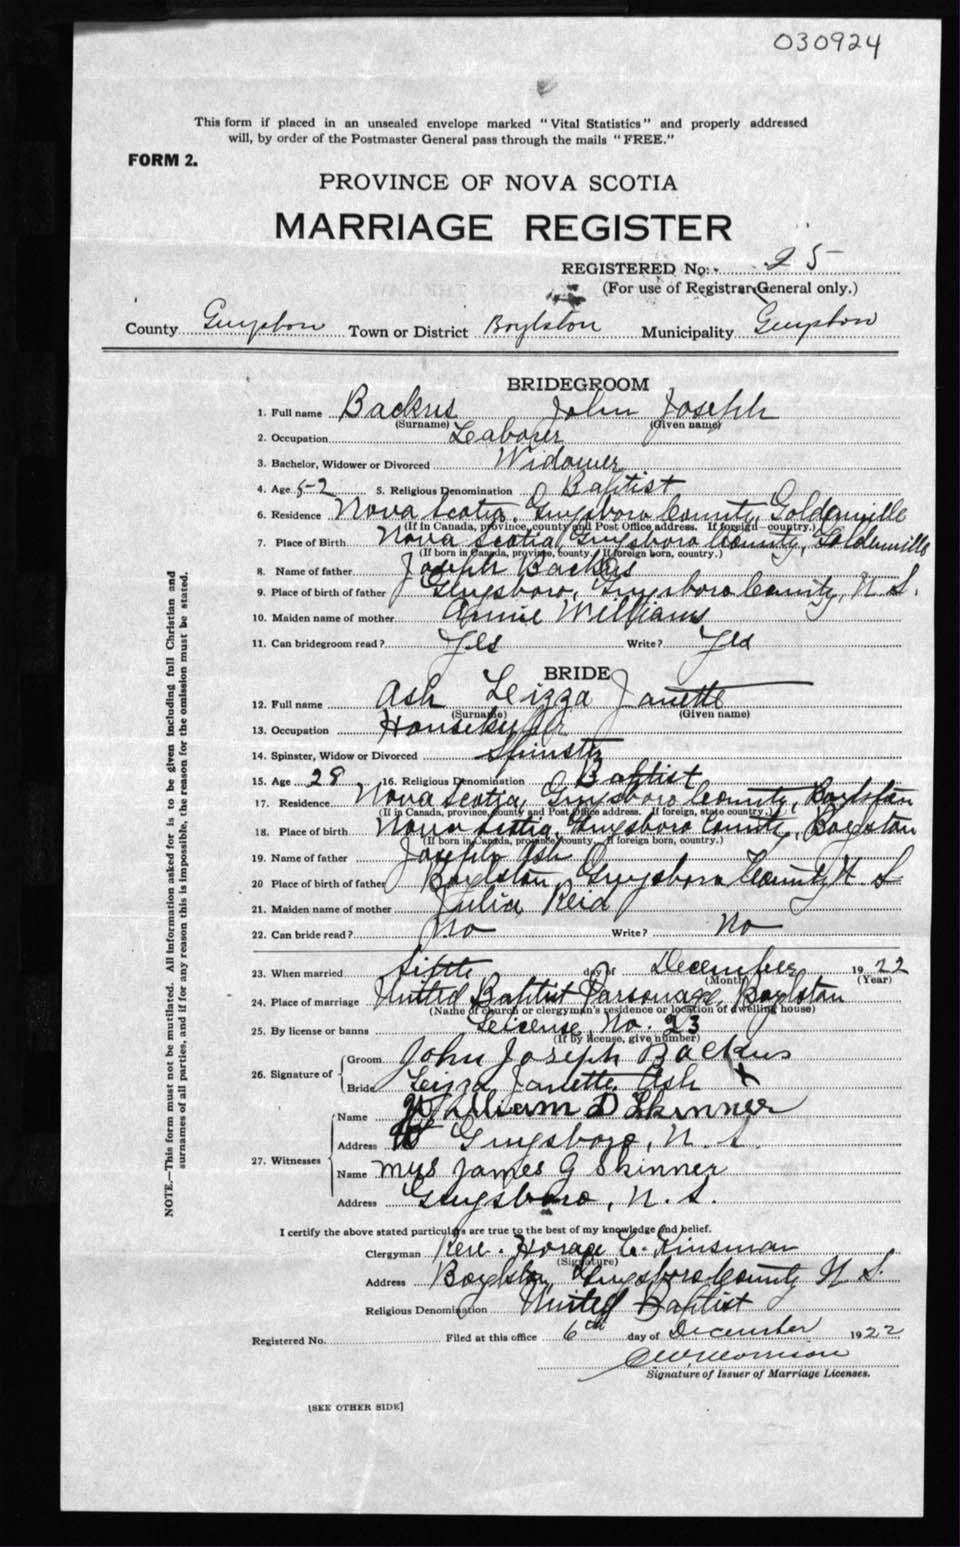 030924
This form if placed in an unsealed envelope marked "Vital Statistics" and properly addressed
will, by order of the Postmaster General pass through the mails "FREE."
FORM 2.
PROVINCE OF NOVA SCOTIA
MARRIAGE REGISTER
REGISTERED No. 25
(For use of Registrar General only.)
County Guysboro Town or District Boylston Municipality Guysboro
BRIDEGROOM
1. Full name Backus John Joseph
(Surname) (Given name)
2. Occupation Laborer
3. Bachelor, Widower or Divorced Widower
4. Age 52 5. Religious Denomination Baptist
6. Residence Nova Scotia, Guysboro County, Goldenville
(If in Canada, province, county and Post Office address. If foreign country.)
7. Place of Birth Nova Scotia, Guysboro County, Goldenville
(If born in Canada, province, county. If foreign born, country.)
8. Name of father Joseph Backus
9. Place of birth of father Guysboro, Guysboro County, N. S.
10. Maiden name of mother Annie Williams
11. Can bridegroom read? Yes Write? Yes
BRIDE
12. Full name Ash Leizza Janette
(Surname) (Given name)
13. Occupation Housekeeper
14. Spinster, Widow or Divorced Spinster
15. Age 28 16. Religious Denomination Baptist
17. Residence Nova Scotia, Guysboro County, Boylston
(If in Canada, province, county and Post Office address. If foreign, state country.)
18. Place of birth Nova Scotia, Guysboro County, Boylston
(If born in Canada, province, county. If foreign born, country.)
19. Name of father Joseph Ash
20 Place of birth of father Boylston, Guysboro County N. S
21. Maiden name of mother Julia Reid
22. Can bride read? No Write? No
23. When married fifth day of December 1922
(Month) (Year)
24. Place of marriage United Baptist Parsonage, Boylston
(Name of church or clergyman's residence or location of dwelling house)
25. By license or banns Leicense, No. 23
(If by license, give number)
26. Signature of
Groom John Joseph Backus
Bride Leizza Janette Ash X
27. Witnesses
Name William D Skinner
Address Guysboro, N. S.
Name Mrs James G Skinner
Address Guysboro, N. S.
I certify the above stated particulars are true to the best of my knowledge and belief.
Clergyman Rev. Horace E. Kinsman
(Signature)
Address Boylston, Guysboro County N. S.
Religious Denomination United Baptist
Registered No. Filed at this office 6th day of December 1922
Morrison
Signature of Issuer of Marriage Licenses.
[SEE OTHER SIDE]
NOTE.—This form must not be mutilated. All information asked for is to be given including full Christian and
surnames of all parties, and if for any reason this is impossible, the reason for the omission must be stated.